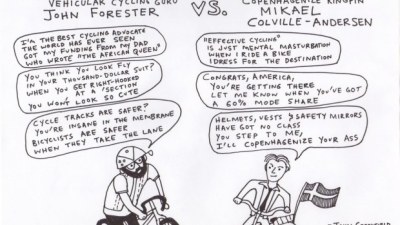 VEHICULAR CYCLING GURU
JOHN FORESTER
VS.
COPENHAGENILE KINGPIN
MIKAEL
COLVILLE-ANDERSEN
I'M THE BEST CYCLING ADVOCATE
THE WORLD HAS EVER SEEN
GOT MY FUNDING FROM MY DAD
WHO WROTE "THE AFRICAN QUEEN"
YOU THINK YOU LOOK FLY
IN YOUR THOUSAND-DOLLAR SUIT?
WHEN YOU GET RIGHT-HOOKED
AT A 'SECTION
YOU WON'T LOOK SO CUTE
CYCLE TRACKS ARE SAFER?
YOU'RE INSANE IN THE MEMBRANE
BICYCLISTS ARE SAFER
WHEN THEY TAKE THE LANE
"EFFECTIVE CYCLING"
IS JUST MENTAL MASTURBATION
WHEN I RIDE A BIKE
I DRESS FOR THE DESTINATION
CONGRATS, AMERICA,
YOU'RE GETTING THERE
LET ME KNOW WHEN YOU'VE GOT
A 60% MODE SHARE
HELMETS, VESTS & SAFETY MIRRORS
HAVE GOT NO CLASS
YOU STEP TO ME,
I'LL COPENHAGENIZE YOUR ASS